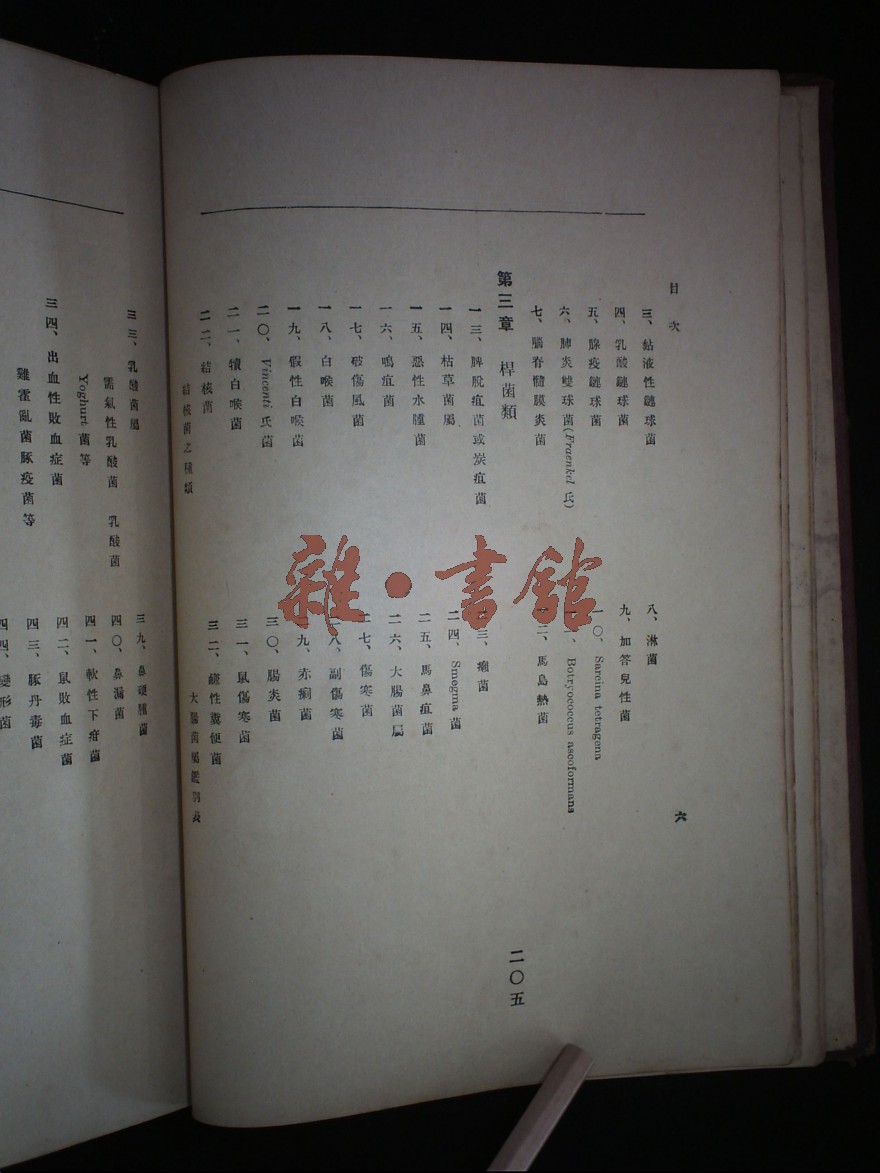 目次
六
三、黏液性鏈球菌
四、乳酸鏈球菌
五、腺疫鏈球菌
六、肺炎雙球菌(Fraenkel 氏)
七、腦脊髓膜炎菌
八、淋菌
九、加答兒性菌
一〇、Sarcina tetragena
Botryococcus ascoformans
二、馬島熱菌
第三章 桿菌類
二〇五
一三、脾脫疽菌或炭疽菌
一四、枯草菌屬
一五、惡性水腫菌
一六、鳴疽菌
一七、破傷風菌
一八、白喉菌
一九、假性白喉菌
二〇、Vincenti 氏菌
二一、犢白喉菌
二二、結核菌
結核菌之種類
三、癩菌
二四、Smegma 菌
二五、馬鼻疽菌
二六、大腸菌屬
二七、傷寒菌
八、副傷寒菌
九、赤痢菌
三〇、腸炎菌
三一、鼠傷寒菌
三二、鹼性糞便菌
大腸菌屬鑑別表
三三、乳酸菌屬
需氣性乳酸菌 乳酸菌
Yoghurt 菌等
三四、出血性敗血症菌
雞霍亂菌豚疫菌等
三九、鼻硬腫菌
四〇、鼻漏菌
四一、軟性下疳菌
四二、鼠敗血症菌
四三、豚丹毒菌
四四、變形菌
雜·書館